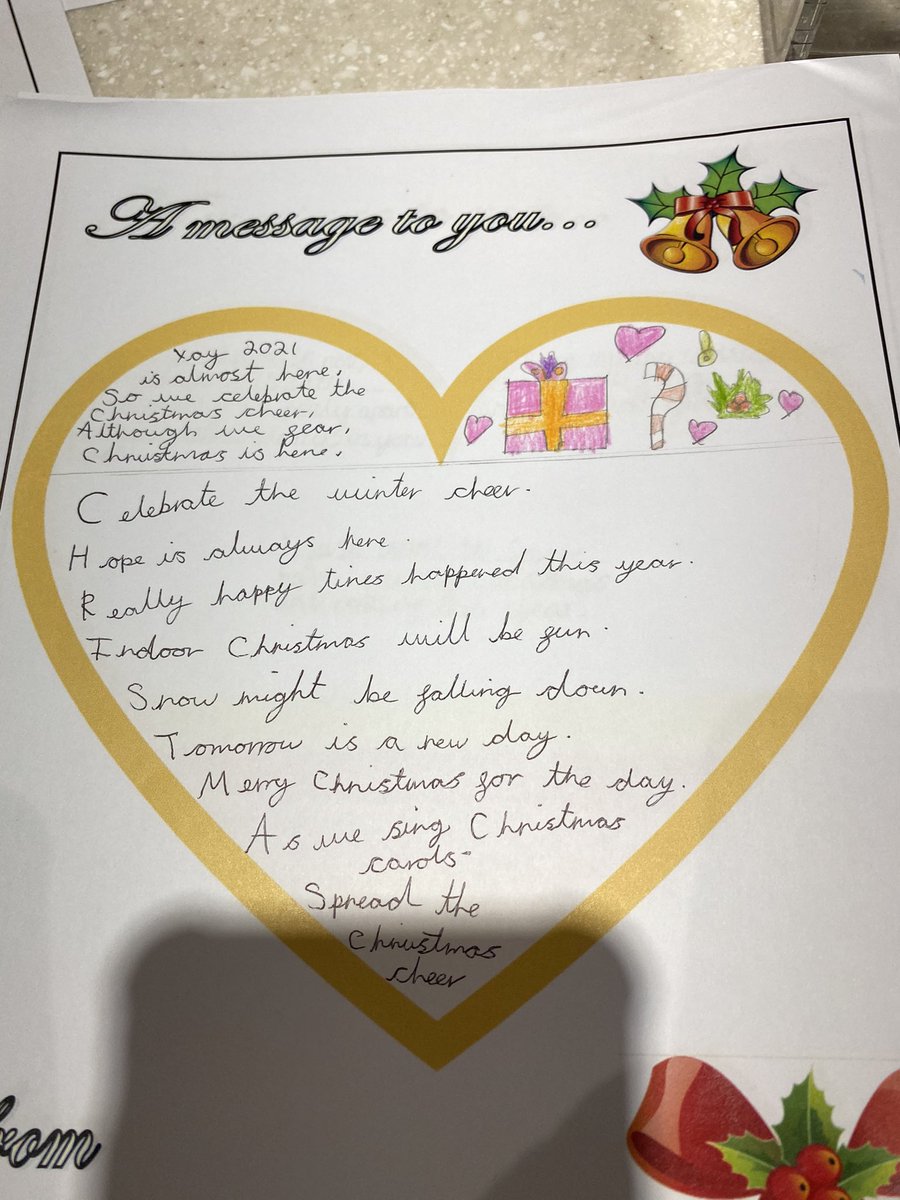 A message to you...
2021
is almost here,
So we celebrate the
Christmas cheer,
Although we fear,
Christmas is here.
Celebrate the winter cheer.
Hope is always here.
Really happy tines happened this year.
Indoor Christmas will be fun.
Snow might be falling down.
Tomorrow is a new day.
Merry Christmas for the day.
As we sing Christmas
carols-
Spread the
Christmas
cheer
from